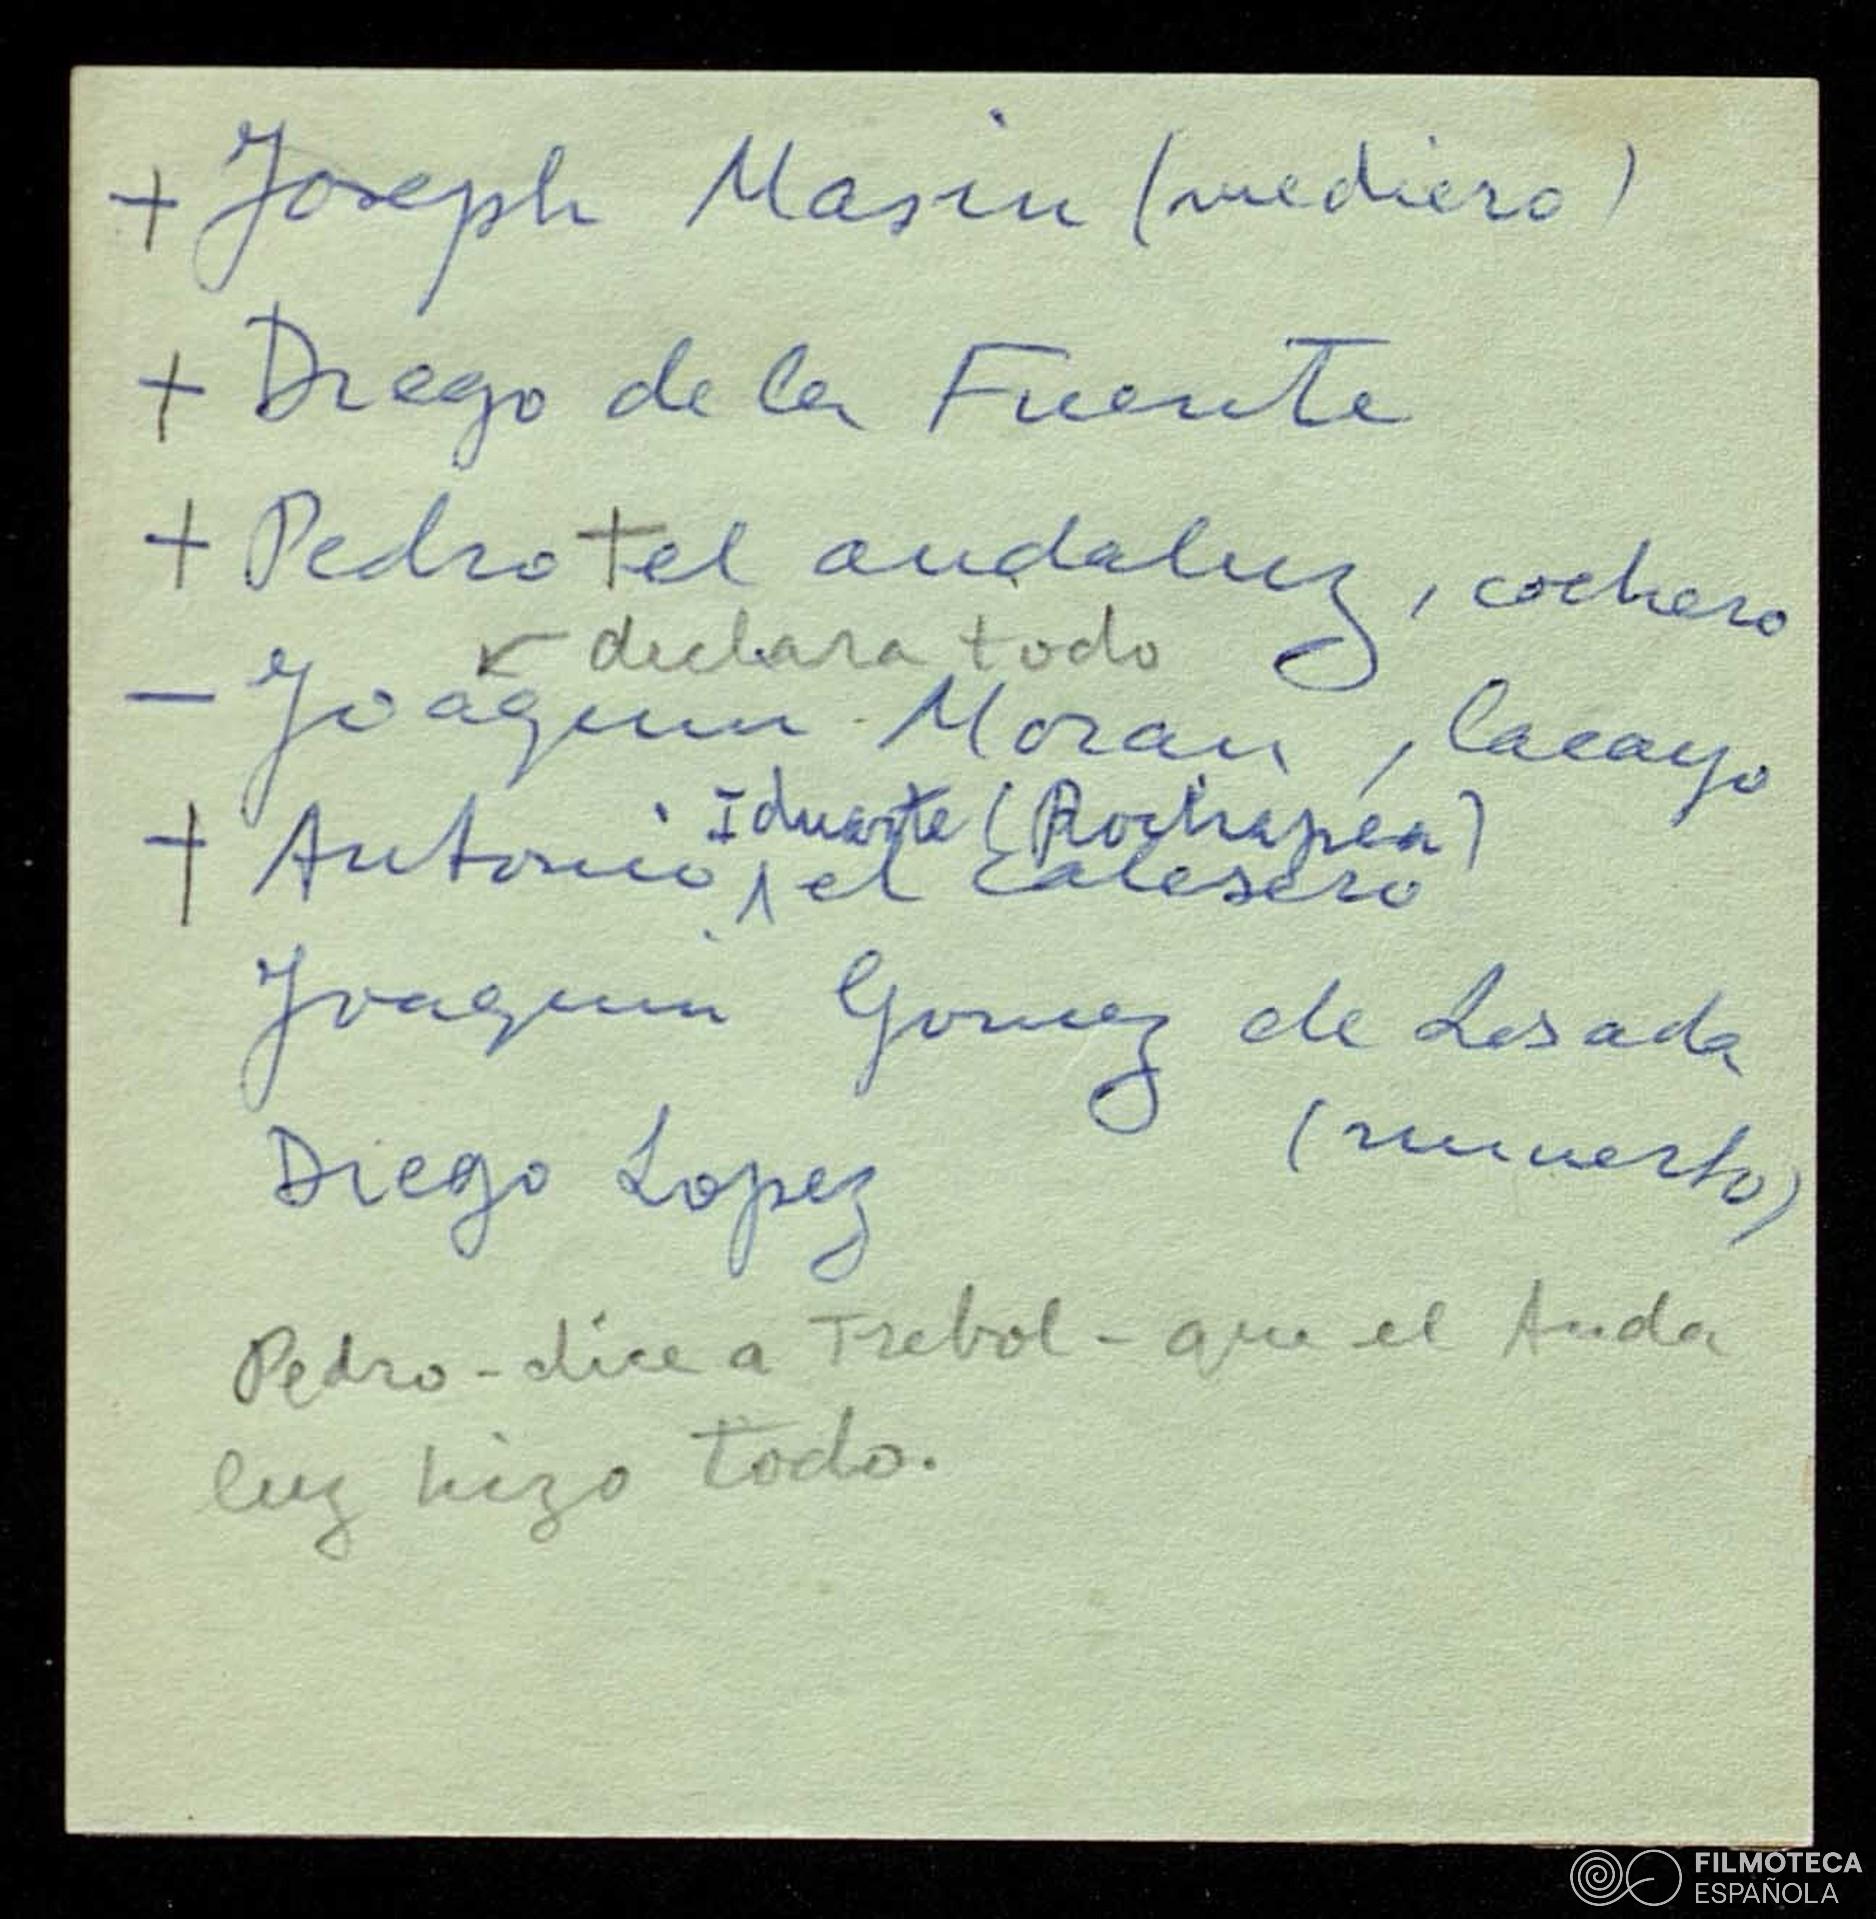 + Joseph Masin (mediero)
+ Diego de la Fuente
+ Pedro + el andaluz, cochero
declara todo
- Joaquin Moran, lacayo
Iduarte (Rochapea)
+ Antonio, el calesero
Joaquin Gomez de Losada
(muerto)
Diego Lopez
Pedro - dice a Trebol - que el Anda
luz hizo todo.
FILMOTECA
ESPAÑOLA